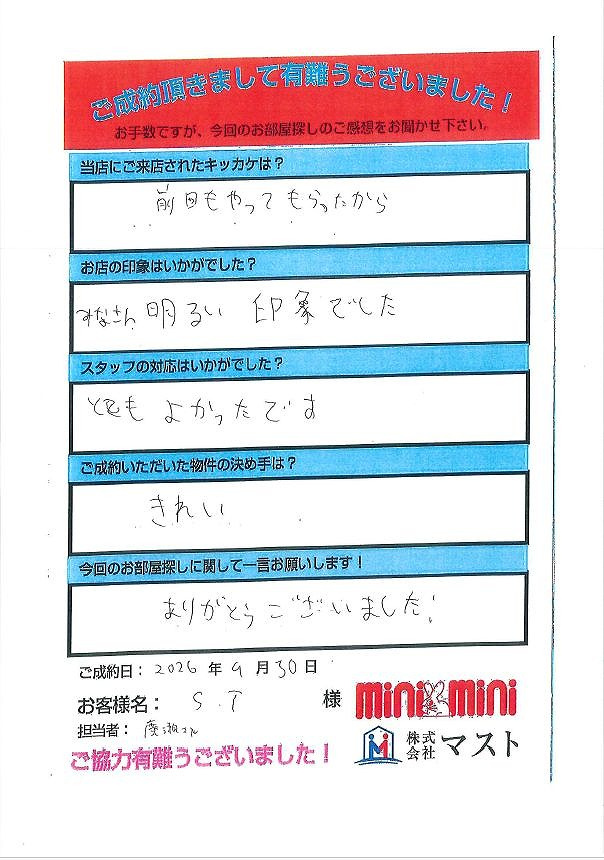 ご成約頂きまして有難うございました！
お手数ですが、今回のお部屋探しのご感想をお聞かせ下さい。
当店にご来店されたキッカケは？
前回もやってもらったから
お店の印象はいかがでした？
みなさん 明るい 印象でした
スタッフの対応はいかがでした？
とても よかったです
ご成約いただいた物件の決め手は？
きれい
今回のお部屋探しに関して一言お願いします！
ありがとうございました!
ご成約日： 2026 年 9 月 30 日
お客様名： S.T 様
担当者： 廣瀬さん
ご協力有難うございました！
mini mini
株式会社 マスト